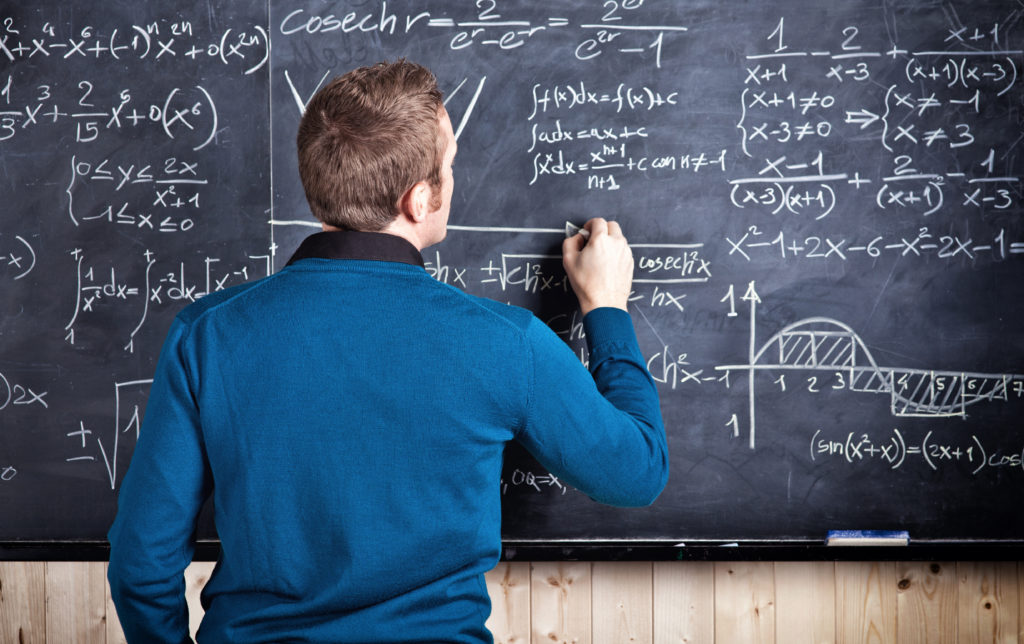 x²+x⁴-x⁶+(-1)ⁿx²ⁿ+o(x²ⁿ)
x³+2/15 x⁵+o(x⁶)
{0≤y≤2x/(x²+1)
{-1≤x≤0
∫1/x² dx=∫x⁻²dx=[x⁻¹
)2x
±√
cosech r=2/(eʳ-e⁻ʳ)=2eʳ/(e²ʳ-1)
∫f(x)dx=f(x)+c
∫adx=ax+c
∫xⁿdx=xⁿ⁺¹/(n+1)+c con n≠-1
±√ch²x-1
cosech²x
hx
ch²x-1
,OQ=x,
1/(x+1)-2/(x-3)+(x+1)/((x+1)(x-3))
{x+1≠0 ⇒ {x≠-1
{x-3≠0 {x≠3
(x-1)/((x-3)(x+1))+2/(x+1)-1/(x-3)
x²-1+2x-6-x²-2x-1=
1
1 2 3 4 5 6 7
1
(sin(x²+x))=(2x+1)cos